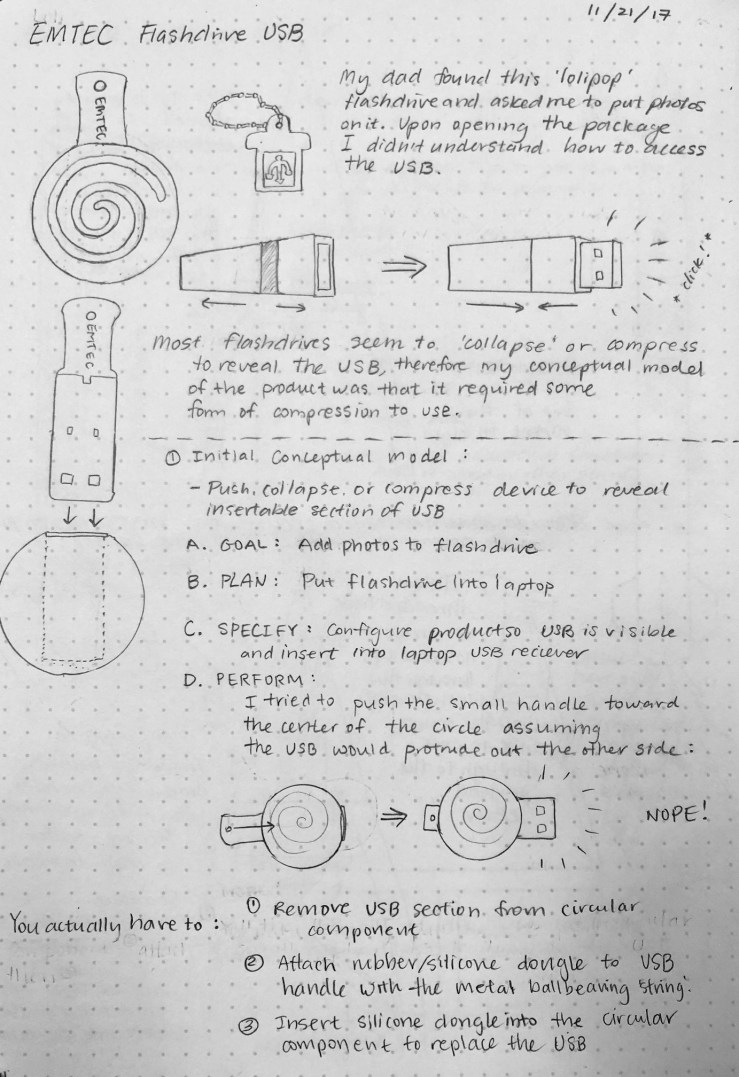 11/21/17
EMTEC Flashdrive USB
My dad found this 'lolipop'
flashdrive and asked me to put photos
on it. Upon opening the package
I didn't understand how to access
the USB.
EMTEC
*click!*
EMTEC
Most flashdrives seem to 'collapse' or compress
to reveal the USB, therefore my conceptual model
of the product was that it required some
form of compression to use.
① Initial Conceptual model :
- Push, collapse, or compress device to reveal
insertable section of USB
A. GOAL : Add photos to flashdrive
B. PLAN : Put flashdrive into laptop
C. SPECIFY : Configure product so USB is visible
and insert into laptop USB reciever
D. PERFORM :
I tried to push the small handle toward
the center of the circle assuming
the USB would protrude out the other side :
NOPE!
You actually have to :
① Remove USB section from circular
component
② Attach rubber/silicone dongle to USB
handle with the metal ballbeaving string.
③ Insert silicone dongle into the circular
component to replace the USB